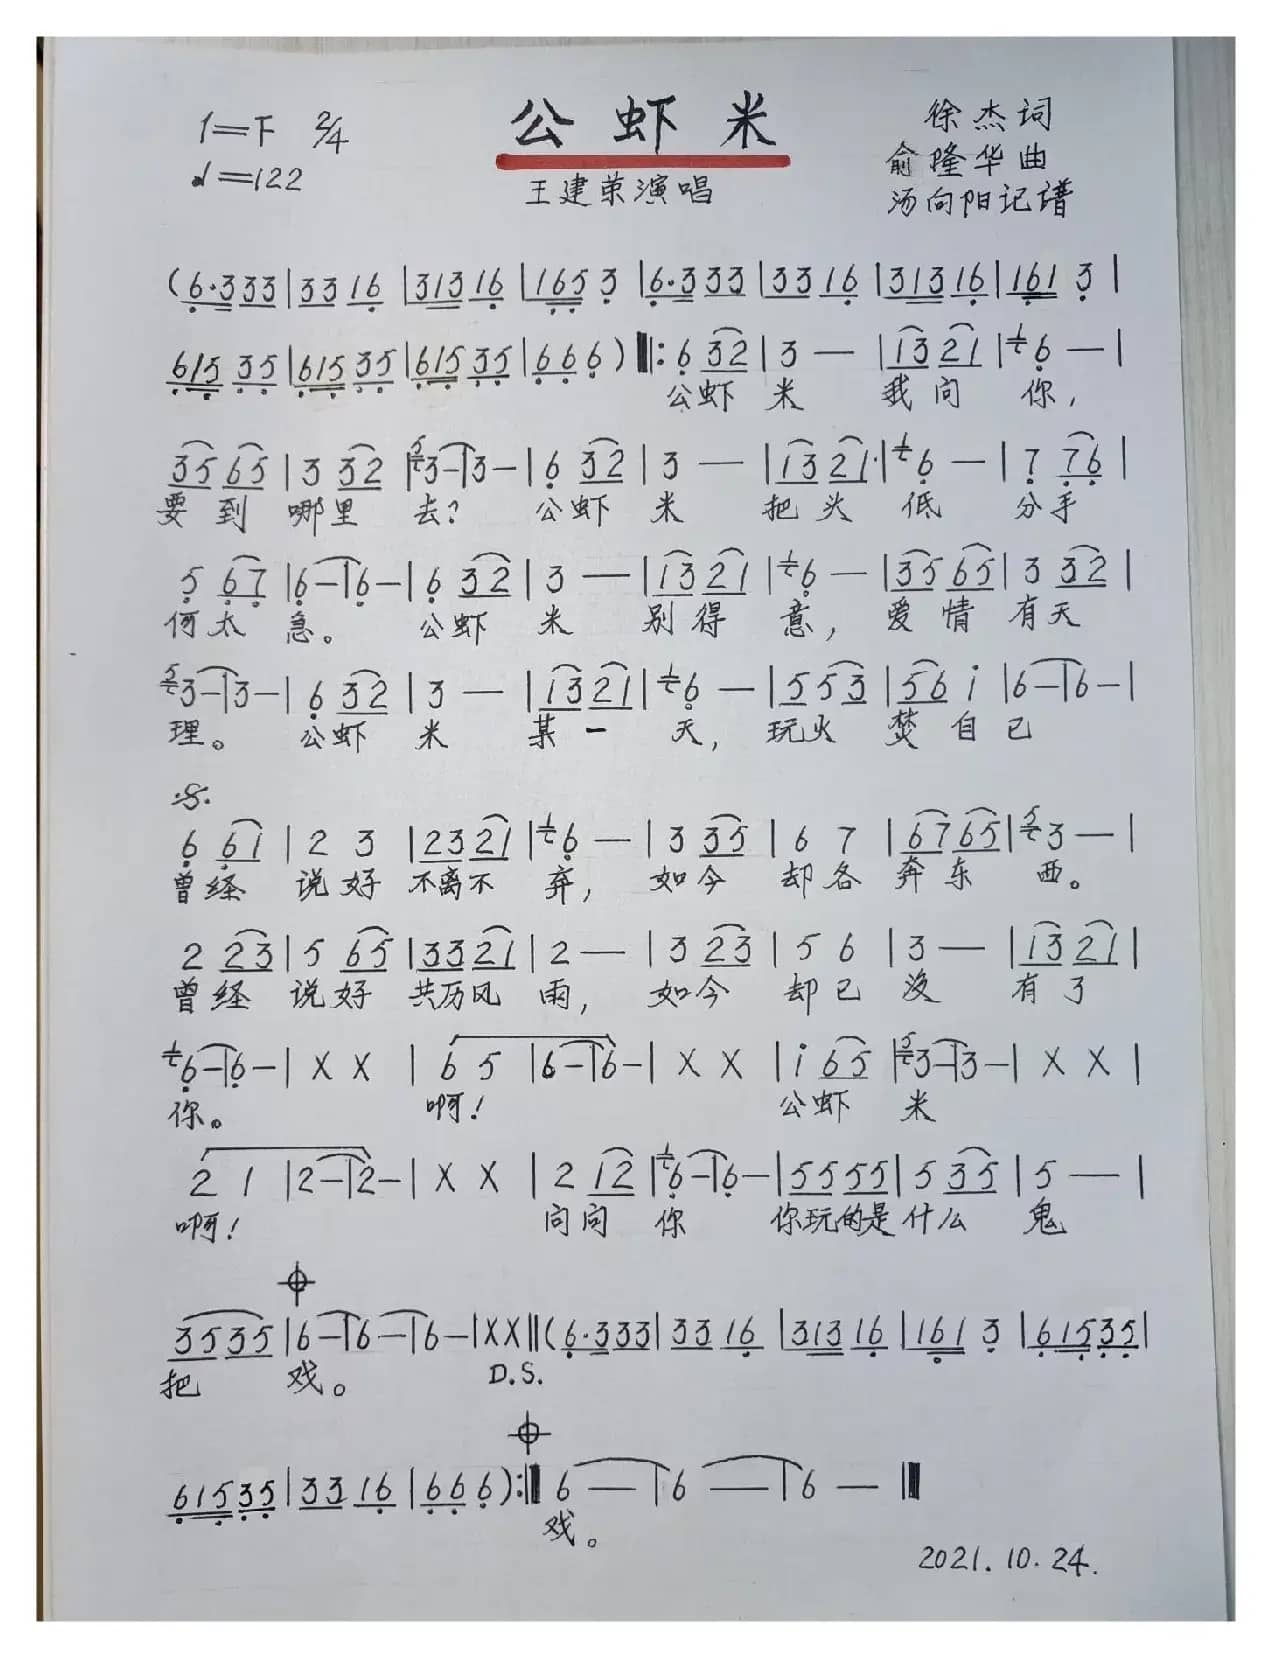 1=F 2/4 公虾米 徐杰词
♩=122 俞隆华曲
王建荣演唱 汤向阳记谱
(6·333|33 16|3131 6|165 3|6·333|33 16|3131 6|161 3|
615 35|615 35|615 35|6 6 6)‖:6 32|3 —|13 21|6 —|
公虾 米 我问 你,
35 65|3 32|3—|3—|6 32|3 —|13 21|6 —|7 76|
要到 哪里 去? 公虾 米 把头 低 分手
5 67|6—|6—|6 32|3 —|13 21|6 —|35 65|3 32|
何太 急。 公虾 米 别得 意, 爱情 有天
3—|3—|6 32|3 —|13 21|6 —|5 53|56 i|6—|6—|
理。 公虾 米 某一 天, 玩火 焚自己
6 61|2 3|23 21|6 —|3 35|6 7|67 65|3 —|
曾经 说好 不离不 弃, 如今 却各 奔东 西。
2 23|5 65|33 21|2 —|3 23|5 6|3 —|13 21|
曾经 说好 共历风 雨, 如今 却已 没 有了
6—|6—|X X|6 5|6—|6—|X X|i 65|3—|3—|X X|
你。 啊! 公虾 米
2 1|2—|2—|X X|2 12|6—|6—|55 55|5 35|5 —|
啊! 问问 你 你玩的是 什么 鬼
3535|6—|6—|6—|XX‖(6·333|33 16|313 16|161 3|61535|
把 戏。 D.S.
61535|33 16|6 6 6):‖6 —|6 —|6 —‖
戏。
2021.10.24.